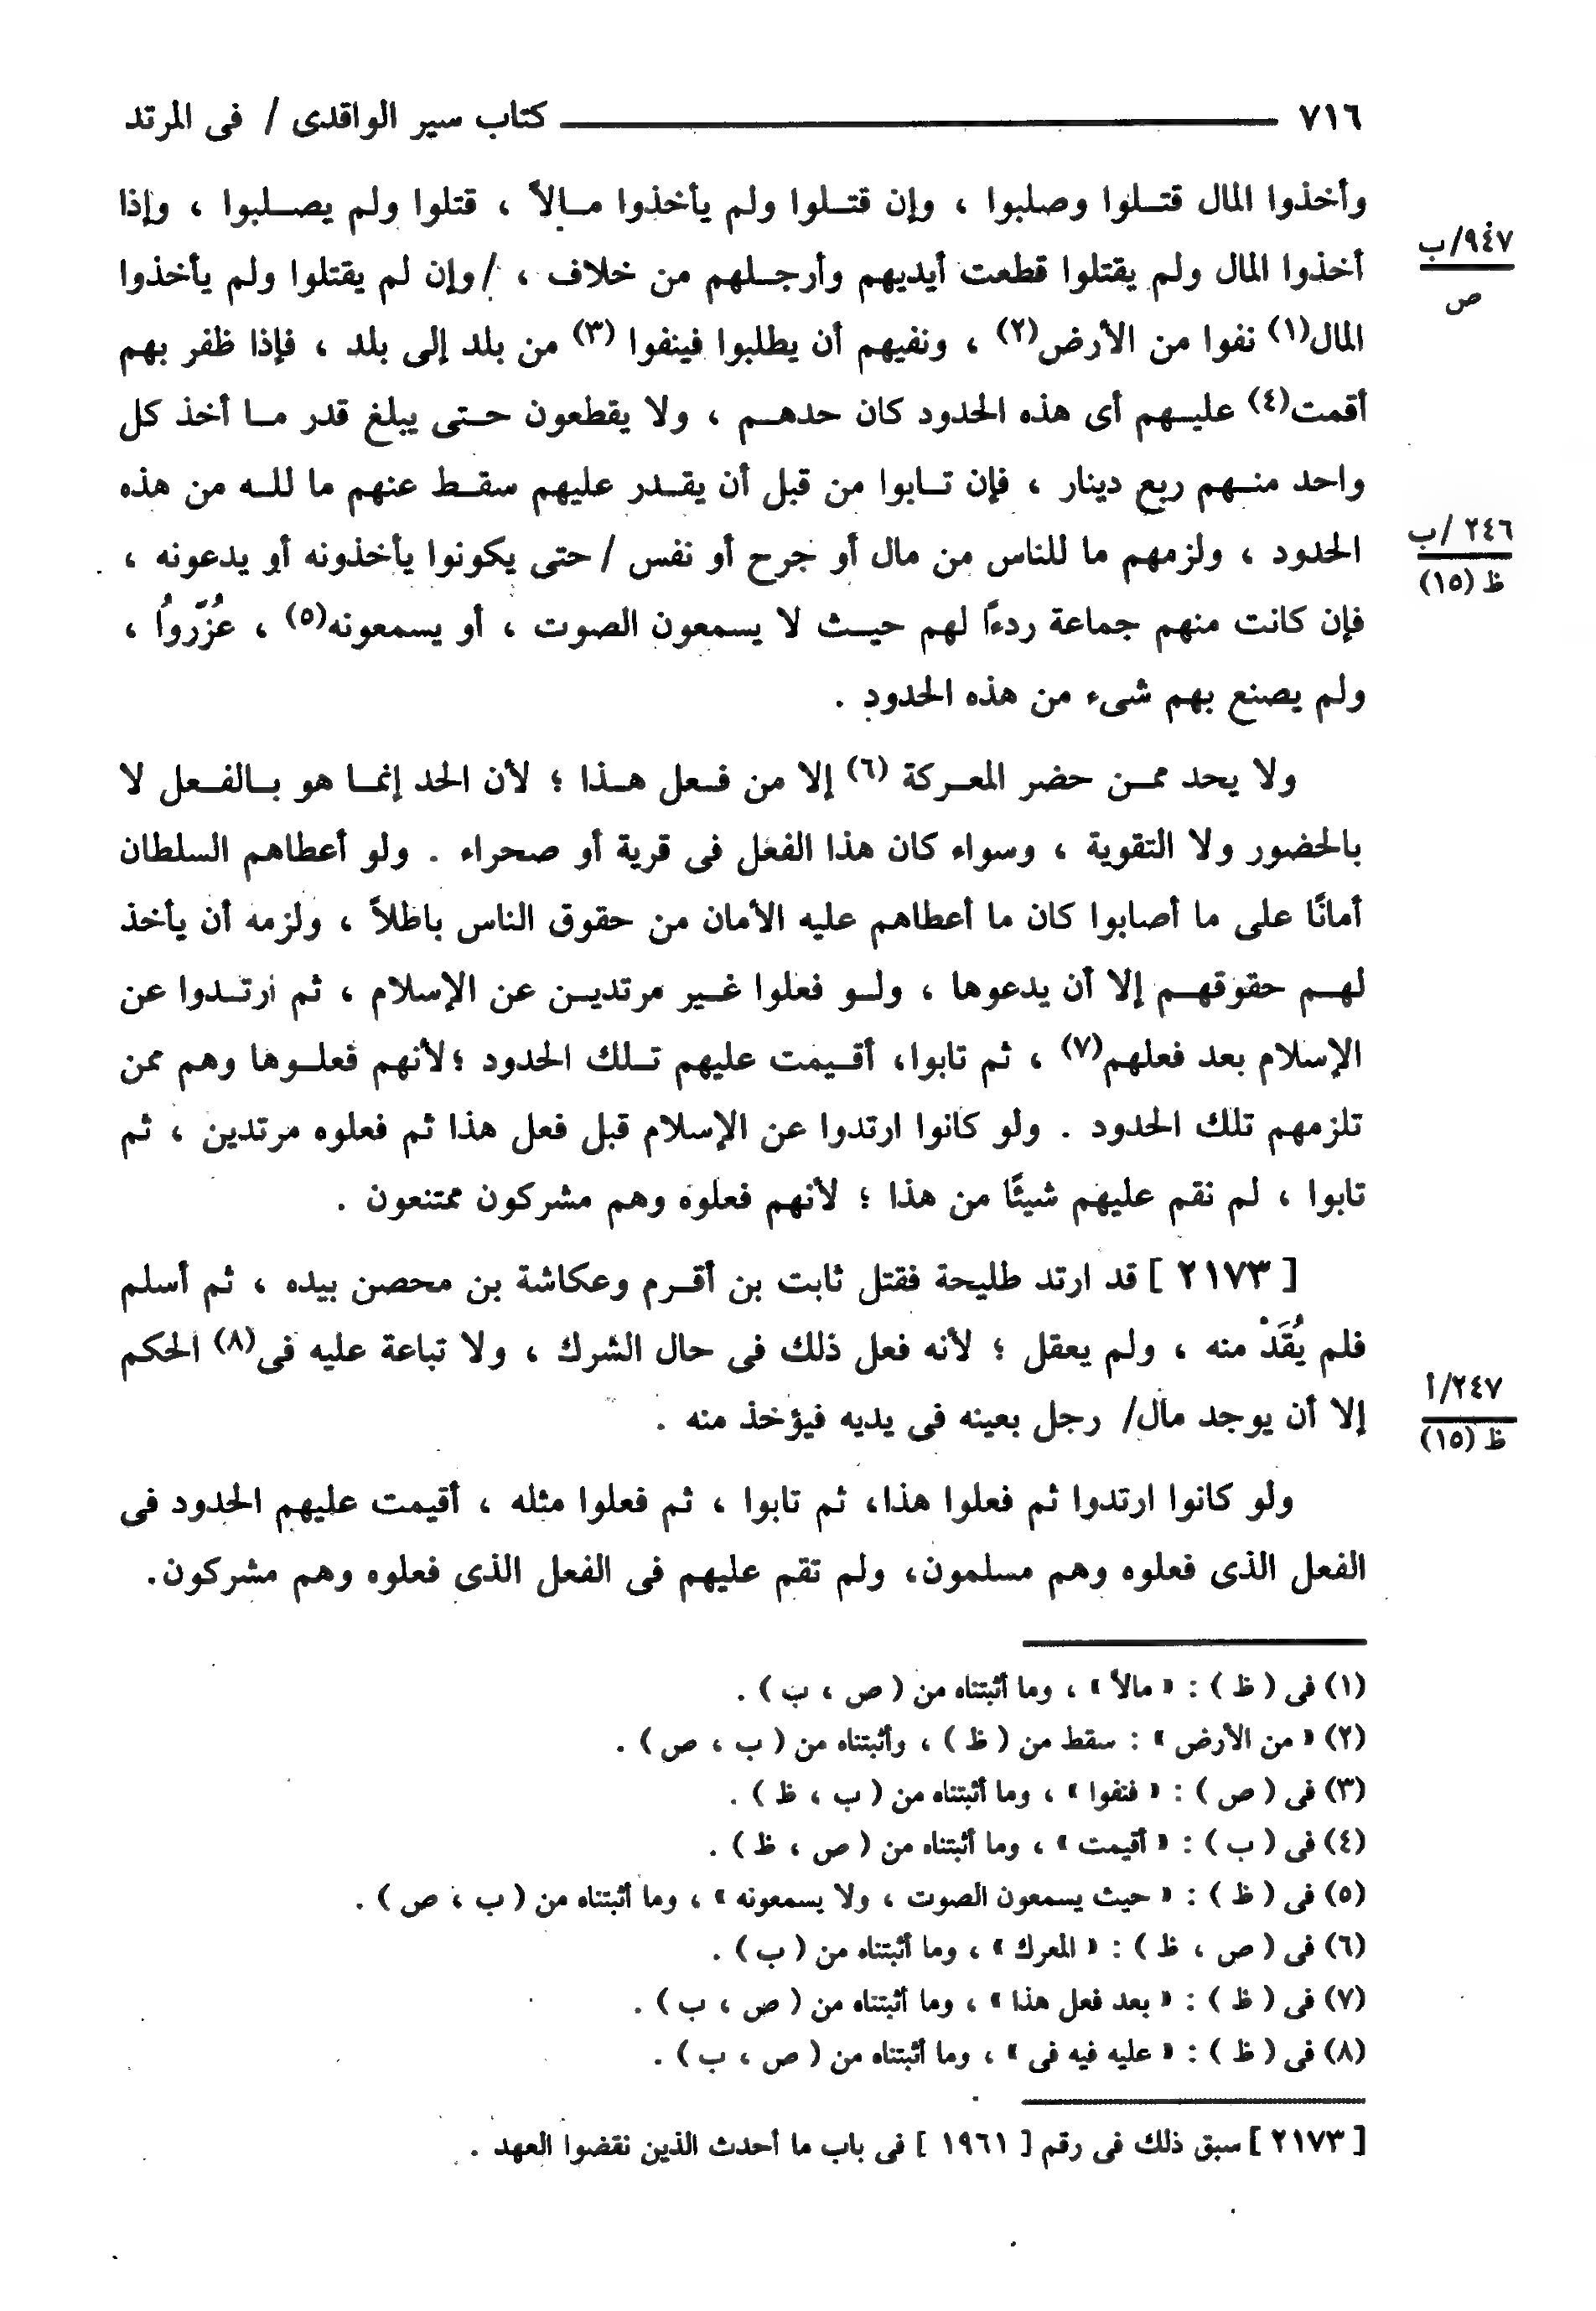 ٧١٦ ــــــــ كتاب سير الواقدى / فى المرتد
وأخذوا المال قتلوا وصلبوا ، وإن قتلوا ولم يأخذوا مالاً ، قتلوا ولم يصلبوا ، وإذا
٩٤٧/ب
ص
أخذوا المال ولم يقتلوا قطعت أيديهم وأرجلهم من خلاف ، /وإن لم يقتلوا ولم يأخذوا
المال(١) نفوا من الأرض(٢) ، ونفيهم أن يطلبوا فينفوا (٣) من بلد إلى بلد ، فإذا ظفر بهم
أقمت(٤) عليهم أى هذه الحدود كان حدهم ، ولا يقطعون حتى يبلغ قدر ما أخذ كل
واحد منهم ربع دينار ، فإن تابوا من قبل أن يقدر عليهم سقط عنهم ما لله من هذه
٢٤٦/ب
ظ (١٥)
الحدود ، ولزمهم ما للناس من مال أو جرح أو نفس /حتى يكونوا يأخذونه أو يدعونه ،
فإن كانت منهم جماعة ردءاً لهم حيث لا يسمعون الصوت ، أو يسمعونه(٥) ، عُزِّروا ،
ولم يصنع بهم شىء من هذه الحدود .
ولا يحد ممن حضر المعركة (٦) إلا من فعل هذا ؛ لأن الحد إنما هو بالفعل لا
بالحضور ولا التقوية ، وسواء كان هذا الفعل فى قرية أو صحراء . ولو أعطاهم السلطان
أمانًا على ما أصابوا كان ما أعطاهم عليه الأمان من حقوق الناس باطلاً ، ولزمه أن يأخذ
لهم حقوقهم إلا أن يدعوها ، ولو فعلوا غير مرتدين عن الإسلام ، ثم ارتدوا عن
الإسلام بعد فعلهم(٧) ، ثم تابوا، أقيمت عليهم تلك الحدود ؛لأنهم فعلوها وهم ممن
تلزمهم تلك الحدود . ولو كانوا ارتدوا عن الإسلام قبل فعل هذا ثم فعلوه مرتدين ، ثم
تابوا ، لم نقم عليهم شيئًا من هذا ؛ لأنهم فعلوه وهم مشركون ممتنعون .
[ ٢١٧٣ ] قد ارتد طليحة فقتل ثابت بن أقرم وعكاشة بن محصن بيده ، ثم أسلم
فلم يُقَدْ منه ، ولم يعقل ؛ لأنه فعل ذلك فى حال الشرك ، ولا تباعة عليه فى(٨) الحكم
٢٤٧/أ
ظ (١٥)
إلا أن يوجد مال/ رجل بعينه فى يديه فيؤخذ منه .
ولو كانوا ارتدوا ثم فعلوا هذا، ثم تابوا ، ثم فعلوا مثله ، أقيمت عليهم الحدود فى
الفعل الذى فعلوه وهم مسلمون، ولم تقم عليهم فى الفعل الذى فعلوه وهم مشركون.
(١) فى ( ظ ) : « مالاً » ، وما أثبتناه من ( ص ، ب ) .
(٢) « من الأرض » : سقط من ( ظ ) ، وأثبتناه من ( ب ، ص ) .
(٣) فى ( ص ) : « فنفوا » ، وما أثبتناه من ( ب ، ظ ) .
(٤) فى ( ب ) : « أقيمت » ، وما أثبتناه من ( ص ، ظ ) .
(٥) فى ( ظ ) : « حيث يسمعون الصوت ، ولا يسمعونه » ، وما أثبتناه من ( ب ، ص ) .
(٦) فى ( ص ، ظ ) : « المعرك » ، وما أثبتناه من ( ب ) .
(٧) فى ( ظ ) : « بعد فعل هذا » ، وما أثبتناه من ( ص ، ب ) .
(٨) فى ( ظ ) : « عليه فيه فى » ، وما أثبتناه من ( ص ، ب ) .
[ ٢١٧٣ ] سبق ذلك فى رقم [ ١٩٦١ ] فى باب ما أحدث الذين نقضوا العهد .